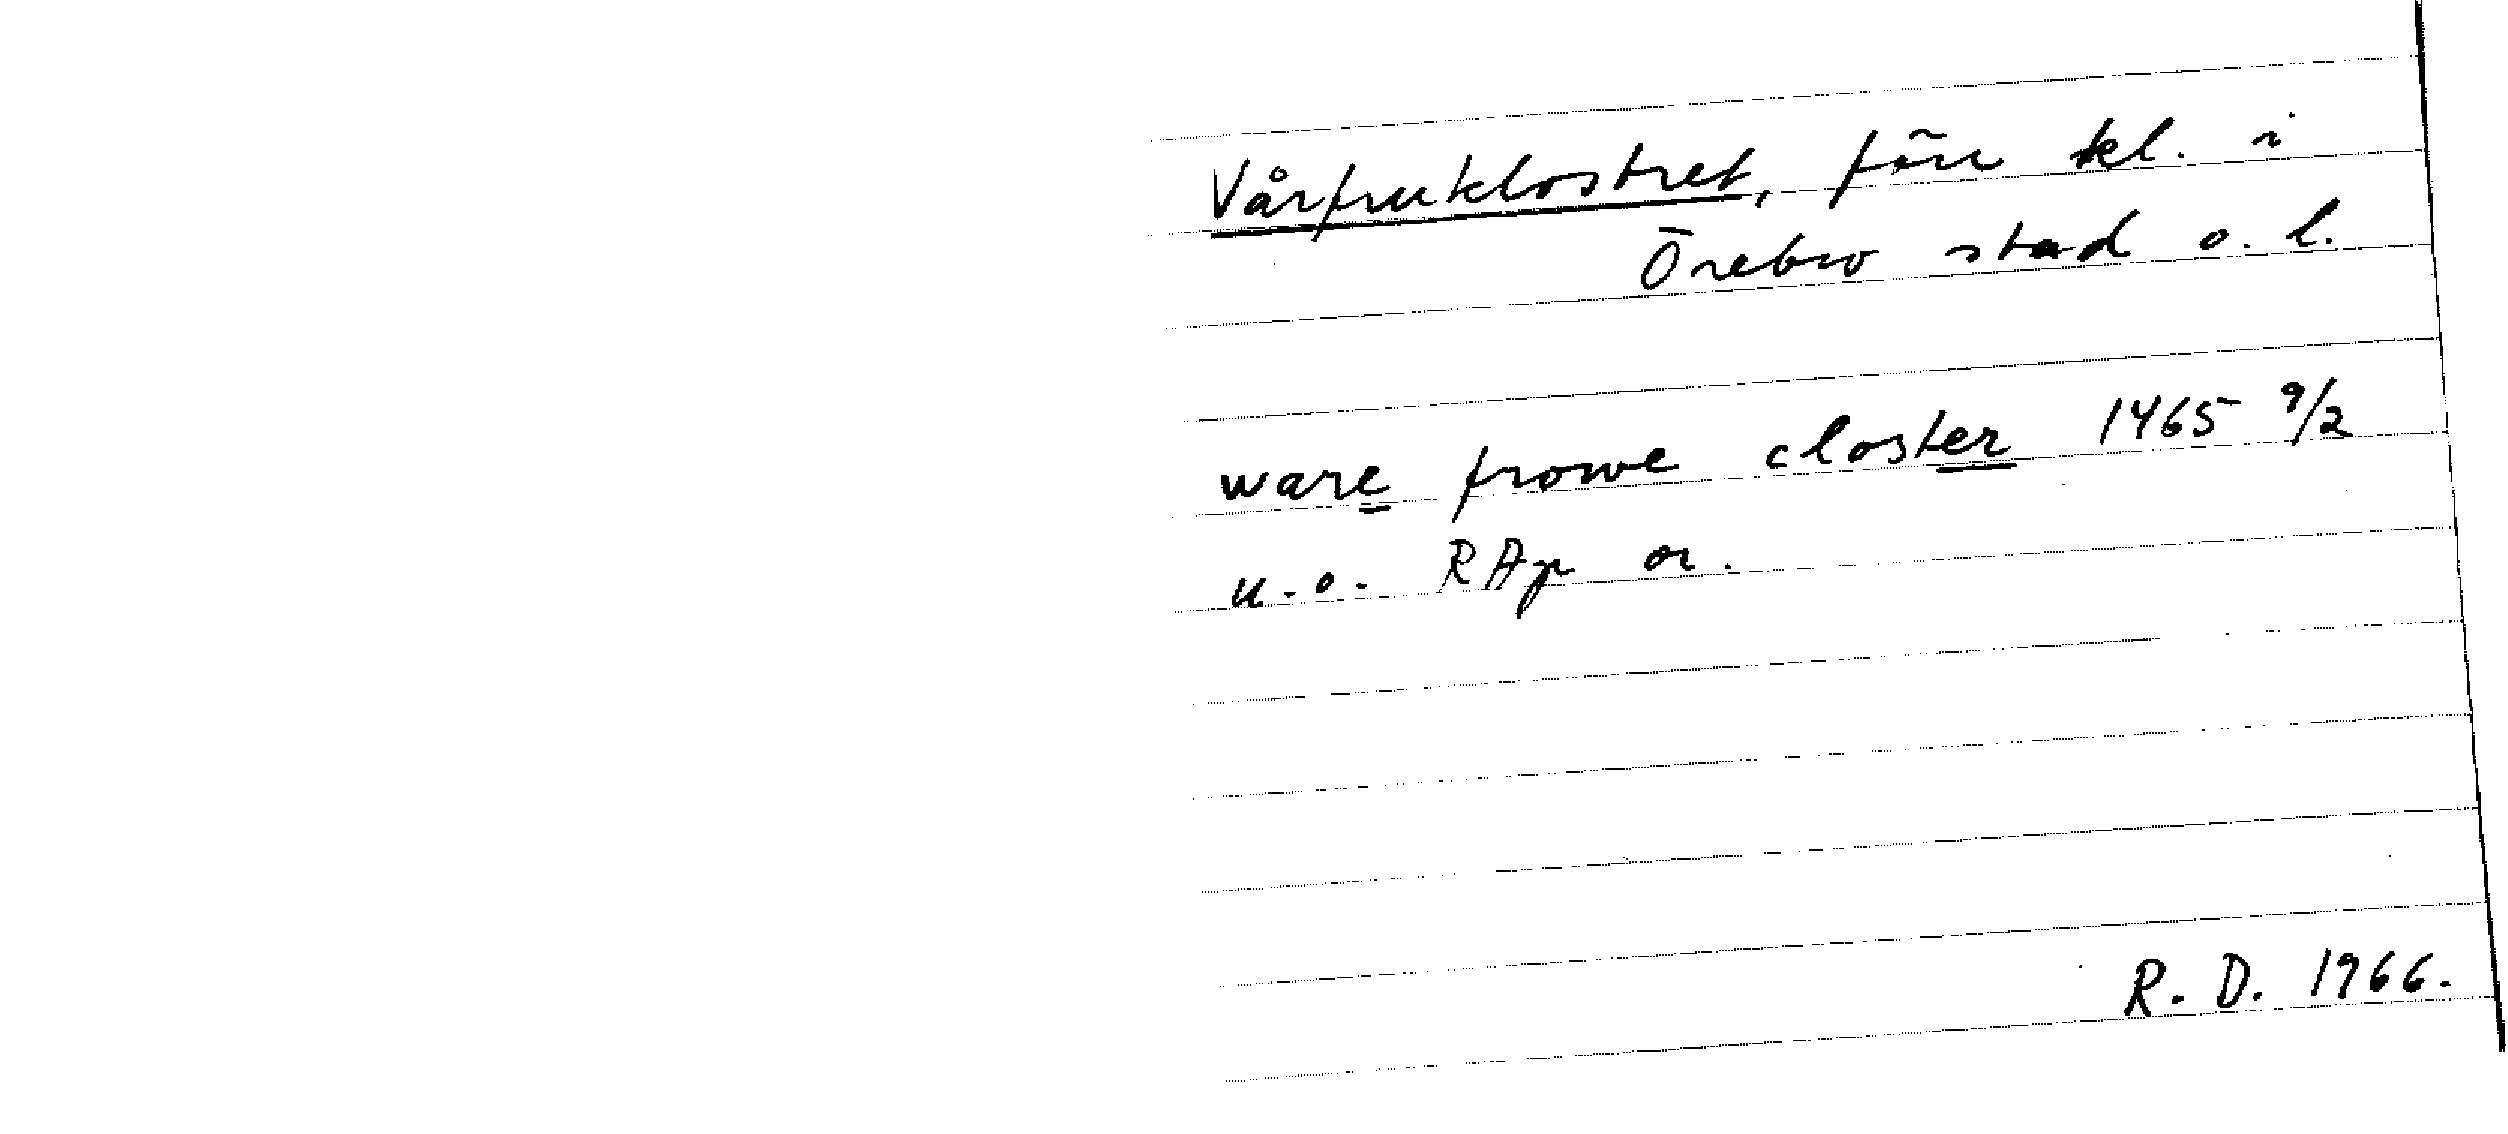 Vårfruklostret, förr kl. i
Örebro stad o. l.
ware frowe closter 1465 9/2
u.o. RAp or.
R. D. 1966.